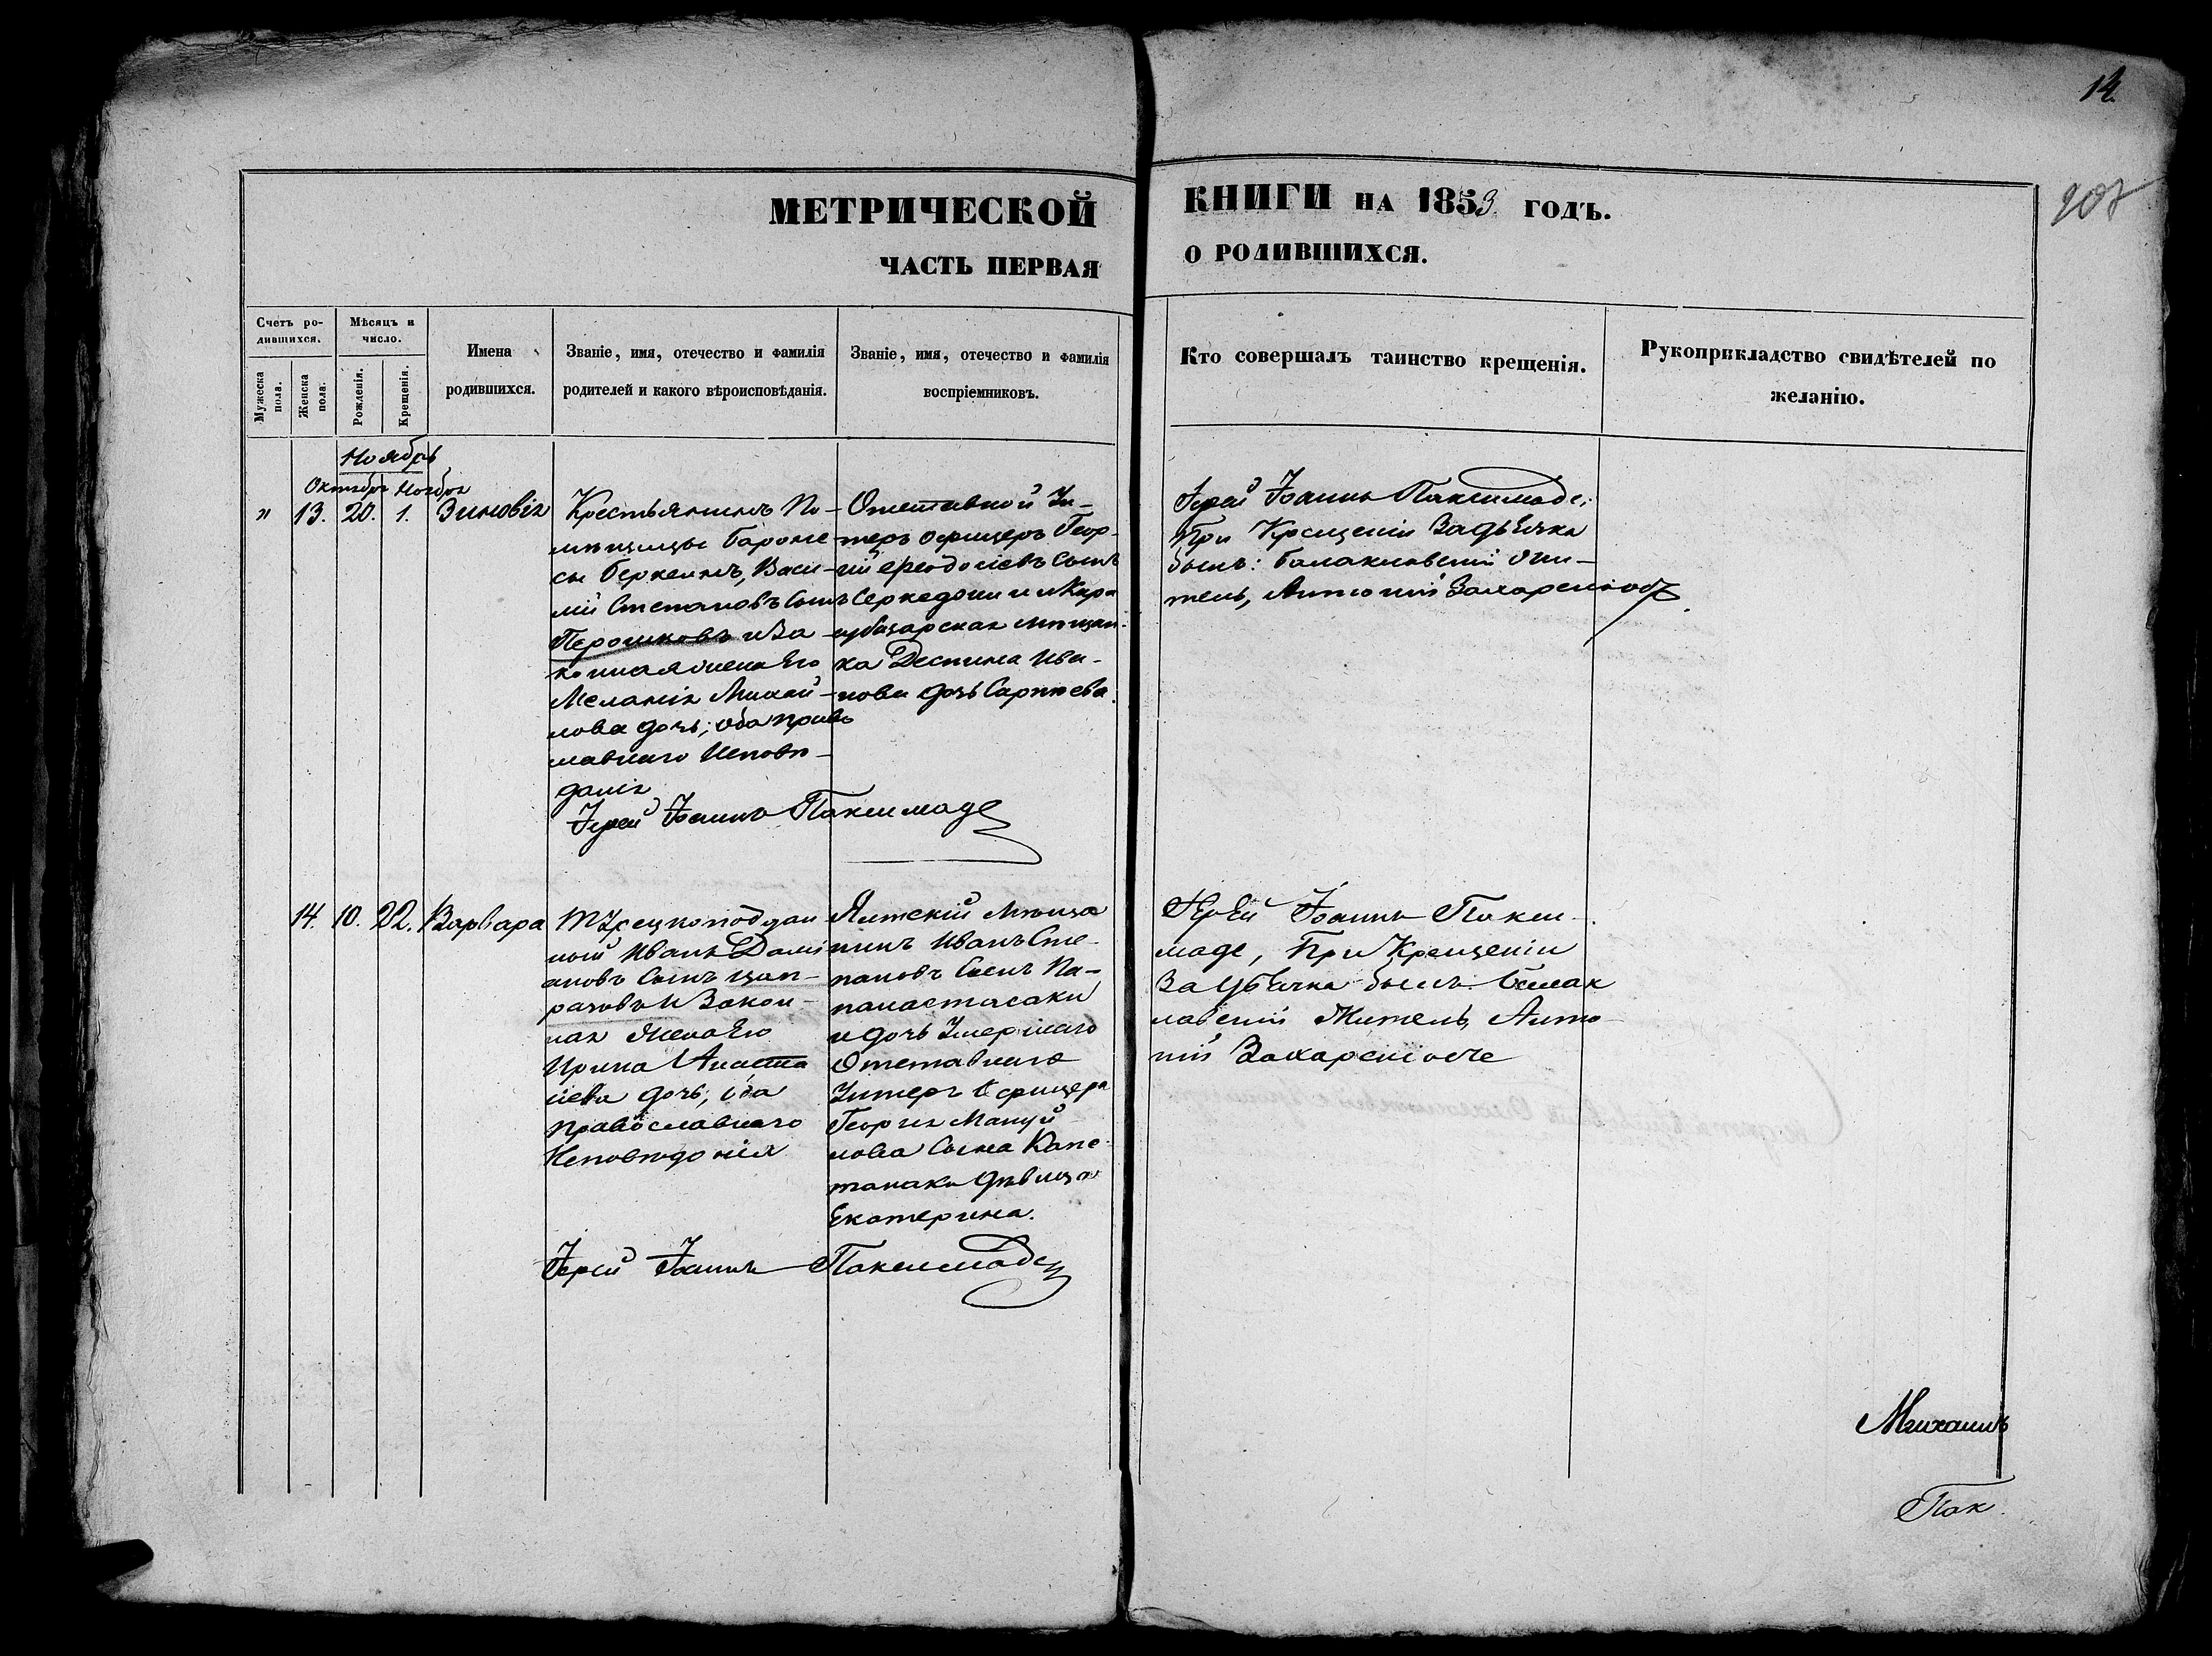 14.
207
МЕТРИЧЕСКОЙ КНИГИ НА 1853 ГОДЪ.
ЧАСТЬ ПЕРВАЯ О РОДИВШИХСЯ.
Счетъ ро-
дившихся.
Мужеска пола.
Женска пола.
Мѣсяцъ и
число.
Рожденія.
Крещенія.
Имена
родившихся.
Званіе, имя, отечество и фамилія
родителей и какого вѣроисповѣданія.
Званіе, имя, отечество и фамилія
воспріемниковъ.
Кто совершалъ таинство крещенія.
Рукоприкладство свидѣтелей по
желанію.
Ноябрь
Октября Ноября
" 13. 20. 1. Зиновія
Крестьянинъ По-
мѣщицы Бароне
сы Беркеимъ, Васи-
лій Степановъ Сынъ
Перошковъ и За-
конная жена Его
Меланія Михай-
лова дочь; оба право
славнаго Исповѣ-
данія
Іерей Іоаннъ Паксимаде
Отставной Ун-
теръ офицеръ Геор-
гій Феодосіевъ Сынъ
и Кара
субазарская мѣщан-
ка Деспина Ива-
нова дочь
Іерей Іоаннъ Паксимаде;
При Крещеніи Задьячка
былъ: балаклавскій Жи-
тель, Антоній
14. 10. 22. Варвара
Турецкоподдан
ной Иванъ Дами
ановъ Сынъ Цап-
разовъ и Закон-
ная Жена Его
Ирина Анаста
сіева дочь; оба
Православнаго
Исповѣданія
Ялтскій Мѣща
нинъ Иванъ Сте-
пановъ Сынъ Па-
панастасаки
и дочь Умершаго
Отставнаго
Унтеръ Офицера
Георгія Мануй
лова Сына Капе
танаки дѣвица
Екатерина.
Іерей Іоаннъ Паксимаде
Іерей Іоаннъ Пакси-
маде, При Крещеніи
За Дьячка былъ Балак
лавскій Житель, Анто
ній
Михаилъ
Пак.